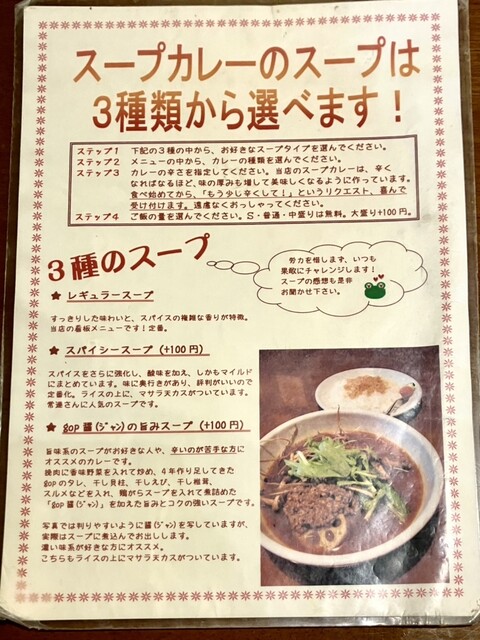 スープカレーのスープは
3種類から選べます！
ステップ1 下記の3種の中から、お好きなスープタイプを選んでください。
ステップ2 メニューの中から、カレーの種類を選んでください。
ステップ3 カレーの辛さを指定してください。当店のスープカレーは、辛く
なればなるほど、味の厚みも増して美味しくなるように作っています。
食べ始めてから、「もう少し辛くして！」というリクエスト、喜んで
受け付けます。遠慮なくおっしゃってください。
ステップ4 ご飯の量を選んでください。S・普通・中盛りは無料。大盛り+100円。
3種のスープ
労力を惜しまず、いつも
果敢にチャレンジします！
スープの感想も是非
お聞かせ下さい。
★ レギュラースープ
すっきりした味わいと、スパイスの複雑な香りが特徴。
当店の看板メニューです！定番。
★ スパイシースープ (+100円)
スパイスをさらに強化し、酸味を加え、しかもマイルド
にまとめています。味に奥行きがあり、評判がいいので
定番化。ライスの上に、マサラ天カスがついています。
常連さんに人気のスープです。
★ gop 醤(ジャン)の旨みスープ (+100円)
旨味系のスープがお好きな人や、辛いのが苦手な方に
オススメのカレーです。
挽肉に香味野菜を入れて炒め、4年作り足してきた
gopのタレ、干し貝柱、干しえび、干し椎茸、
スルメなどを入れ、鶏がらスープを入れて煮詰めた
「gop醤(ジャン)」を加えた旨みとコクの強いスープです。
写真では判りやすいように醤(ジャン)を写していますが、
実際はスープに煮込んでお出しします。
濃い味系が好きな方にオススメ。
こちらもライスの上にマサラ天カスがついています。